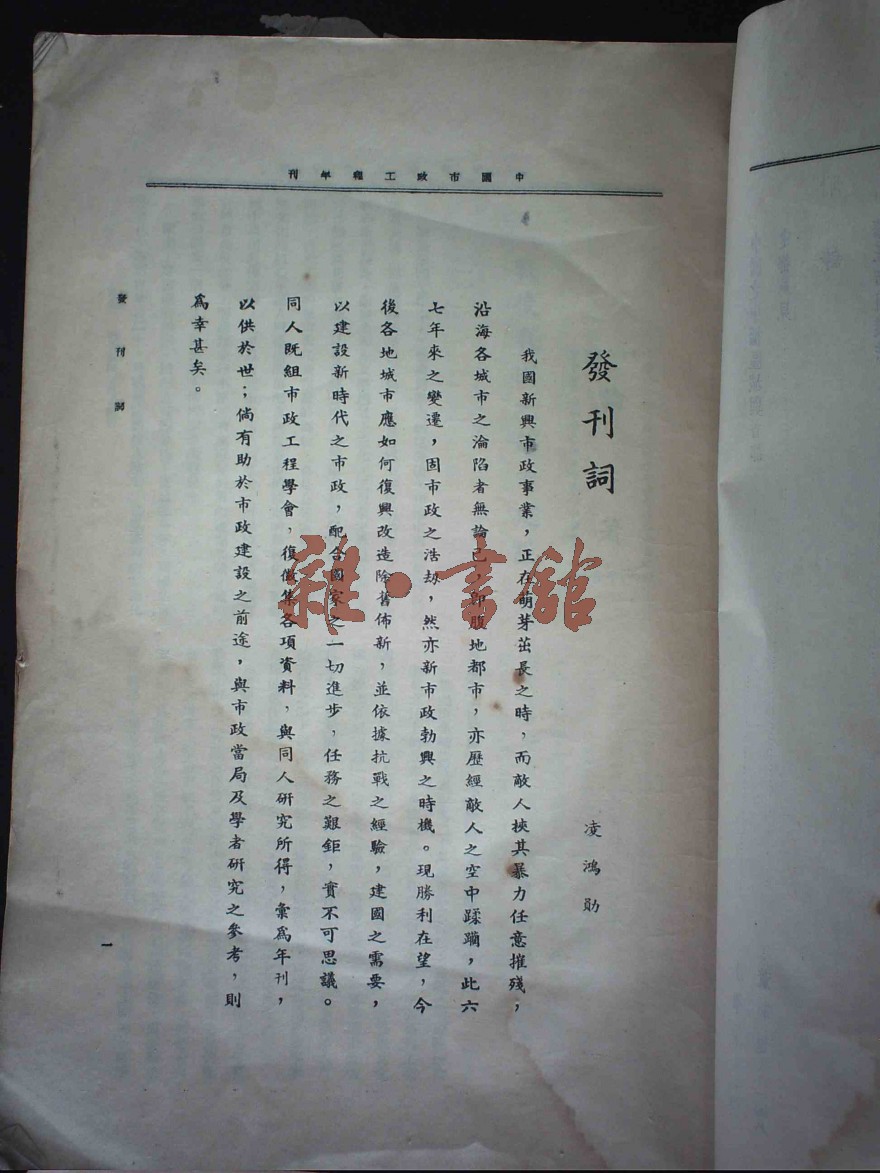 中國市政工程年刊
發刊詞
凌鴻勛
我國新興市政事業，正在萌芽茁長之時，而敵人挾其暴力任意摧殘，
沿海各城市之淪陷者無論已，即腹地都市，亦歷經敵人之空中蹂躪，此六
七年來之變遷，固市政之浩劫，然亦新市政勃興之時機。現勝利在望，今
後各地城市應如何復興改造除舊佈新，並依據抗戰之經驗，建國之需要，
以建設新時代之市政，配合國家之一切進步，任務之艱鉅，實不可思議。
同人既組市政工程學會，復徵集各項資料，與同人研究所得，彙爲年刊，
以供於世；倘有助於市政建設之前途，與市政當局及學者研究之參考，則
爲幸甚矣。
發刊詞
一
雜·書館